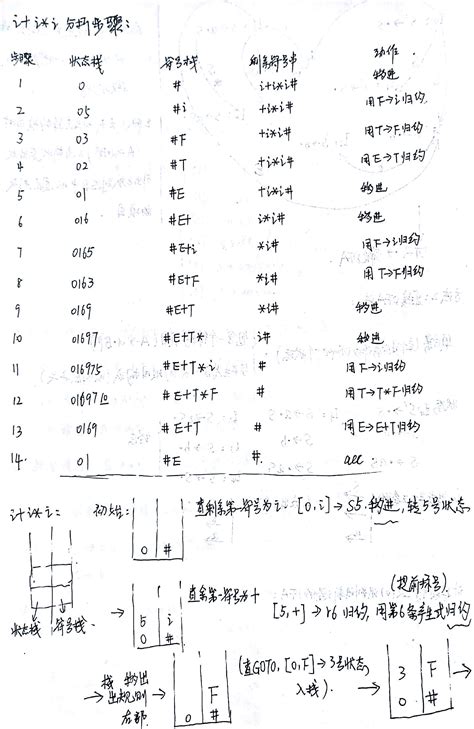 i+i*i 分析步骤:
步骤 状态栈 符号栈 剩余符号串 动作
1 0 # i+i*i# 移进
2 05 #i +i*i# 用F→i归约
3 03 #F +i*i# 用T→F归约
4 02 #T +i*i# 用E→T归约
5 01 #E +i*i# 移进
6 016 #E+ i*i# 移进
7 0165 #E+i *i# 用F→i归约
8 0163 #E+F *i# 用T→F归约
9 0169 #E+T *i# 移进
10 01697 #E+T* i# 移进
11 016975 #E+T*i # 用F→i归约
12 0169710 #E+T*F # 用T→T*F归约
13 0169 #E+T # 用E→E+T归约
14. 01 #E #. acc.
i+i*i: 初始: 0 # 查剩余第一符号为i. [0,i]→S5.移进,转5号状态
状态栈 符号栈
→ 5 i 0 # 查剩余第一符号为+ [5,+]→r6归约,用第6条产生式归约
(提前符号)
→ 栈 移出 出规则 右部. → 0 F # (查GOTO,[0,F]→3号状态, 入栈). → 3 F 0 #